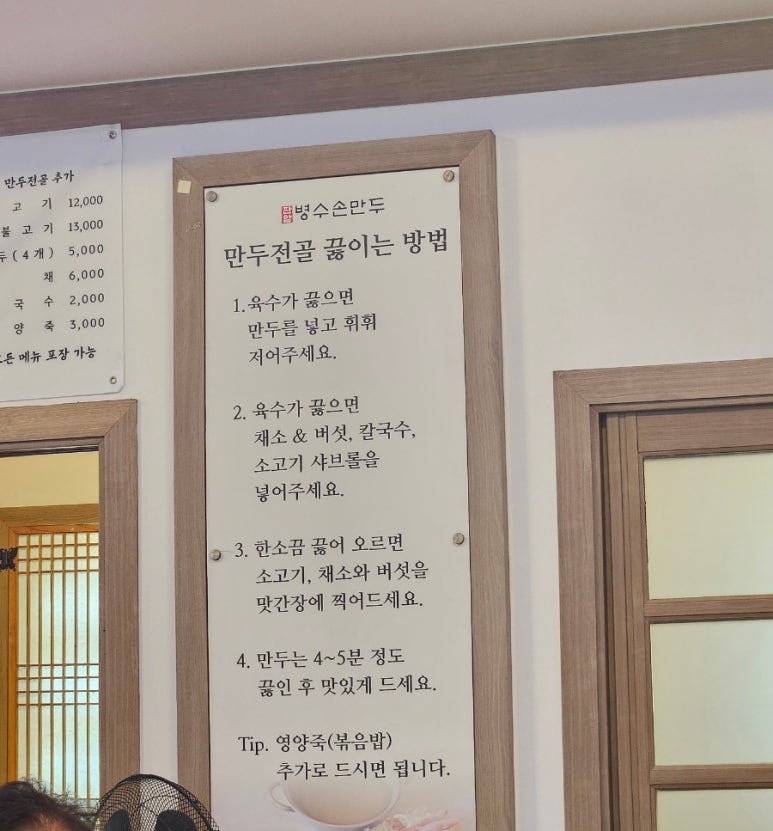 만두전골 추가
고 기 12,000
불 고 기 13,000
두 ( 4 개 ) 5,000
채 6,000
국 수 2,000
양 죽 3,000
든 메뉴 포장 가능
병수손만두
만두전골 끓이는 방법
1. 육수가 끓으면
만두를 넣고 휘휘
저어주세요.
2. 육수가 끓으면
채소 & 버섯, 칼국수,
소고기 샤브롤을
넣어주세요.
3. 한소끔 끓어 오르면
소고기, 채소와 버섯을
맛간장에 찍어드세요.
4. 만두는 4~5분 정도
끓인 후 맛있게 드세요.
Tip. 영양죽(볶음밥)
추가로 드시면 됩니다.